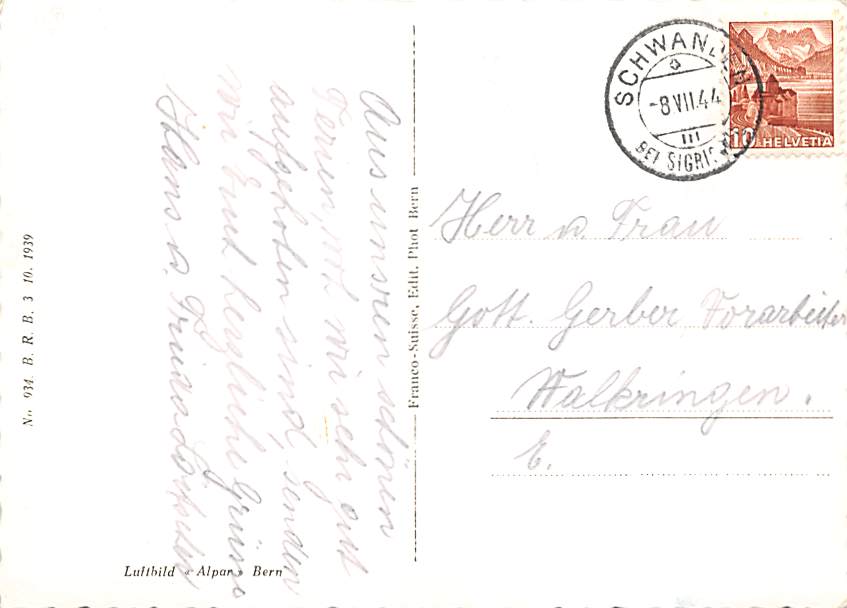 Aus unseren schönen
Ferien, wo wir sehr gut
aufgehoben sind, senden
wir Euch herzliche Grüsse
Hans u.
Franco-Suisse, Edit. Phot Bern
No. 934 B. R. B. 3 10. 1939
Luftbild «Alpar» Bern
SCHWANDEN
a
-8.VII.44
III
BEI SIGRIS
10 HELVETIA
Herr u. Frau
Gott. Gerber Vorarbeiter
Walkringen.
E.